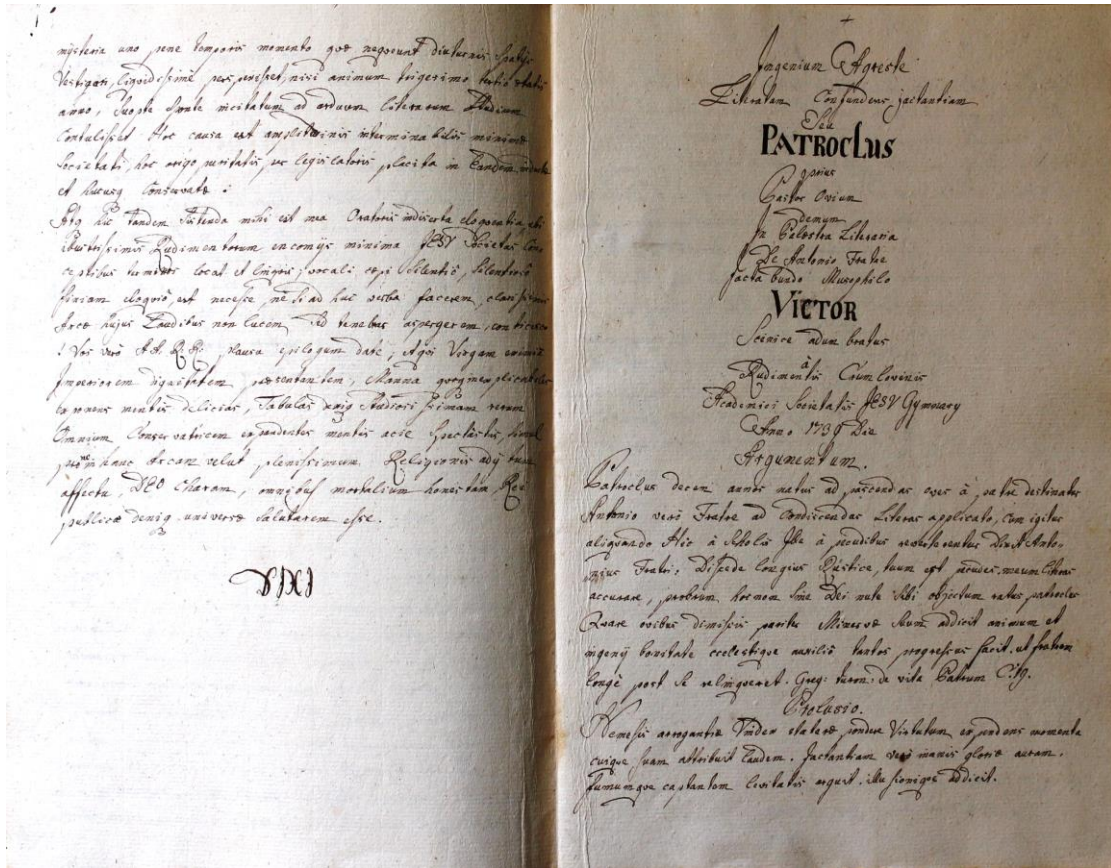 mysteria uno pene temporis momento quæ nequeunt diuturnis spatijs
vestigari, liquidissimè perspexisset, nisi animum trigesimo tertio ætatis
anno, suopte sponte incitatum ad arduum literarum studium
contulisset. Hæc causa est amplitudinis interminabilis minimæ
Societati, hæc origo puritatis, ac legislatoris placita in eandem
et hucusq conservatæ.
Atq hic tandem sistenda mihi est mea Oratoris indiserta eloquentia, ubi
Rudimentorum encomijs minima JESV Societas
locat et linguis, vocali silentio
eloquiô, est necesse, ne si ad huc verba facerem, clarissimis
Arcæ hujus Laudibus non lucem sed tenebras aspergerem, conticesco
! Vos verò A.A. R.R. plausu epilogum date, Aqvi Virgam eximiæ
Imperiorem dignitatem præsentantem, Manna
exponens mentis delicias, Tabulas deniq Studiosissimam rerum
Omnium Conservatricem expendentes mentis acie spectastis, simul
hanc Arcam velut plenissimum Religionis
affectu, DEO charam, omnibus mortalium honestam, Rei
publicæ deniq universæ salutarem esse.
DIXI
Ingenium Agreste
Literatam Confundens jactantiam
Seu
PATROCLUS
prius
Pastor Ovium
demum
In Palæstra Literaria
De Antonio Fratre
Jactabundo Musophilo
VICTOR
Scenice adumbratus
à
Rudimentis Crumlovinis
Academici Societatis JESV Gymnasy
Anno 1739 Die
Argumentum.
Patroclus decem annos natus ad pascendas oves à patre destinatus
Antonio verò Fratre ad condiscendas Literas applicato, cum igitur
aliquando Hic à Scholis Ille à pecudibus reverterentur dixit Anto-
nius Fratri: Discede longius Rustice, tuum est pecudes, meum literas
accurare, probrum hoc non sine Dei nutu sibi objectum ratus patroclus
Quare ovibus dimissis pariter Minervæ suum addicit animum et
ingenij bonitate cœlestique auxiliô tantos progressus facit, ut fratrem
longè post se relinqueret. Greg: turon: de vita Patrum C: 19.
Prolusio.
Nemesis arrogantiæ Vindex stateræ pondere Virtutum expendens momenta
cuique suam attribuit laudem. Jactantiam verò inanis gloriæ auram,
fumumque captantem levitatis arguit, illusionique addicit.